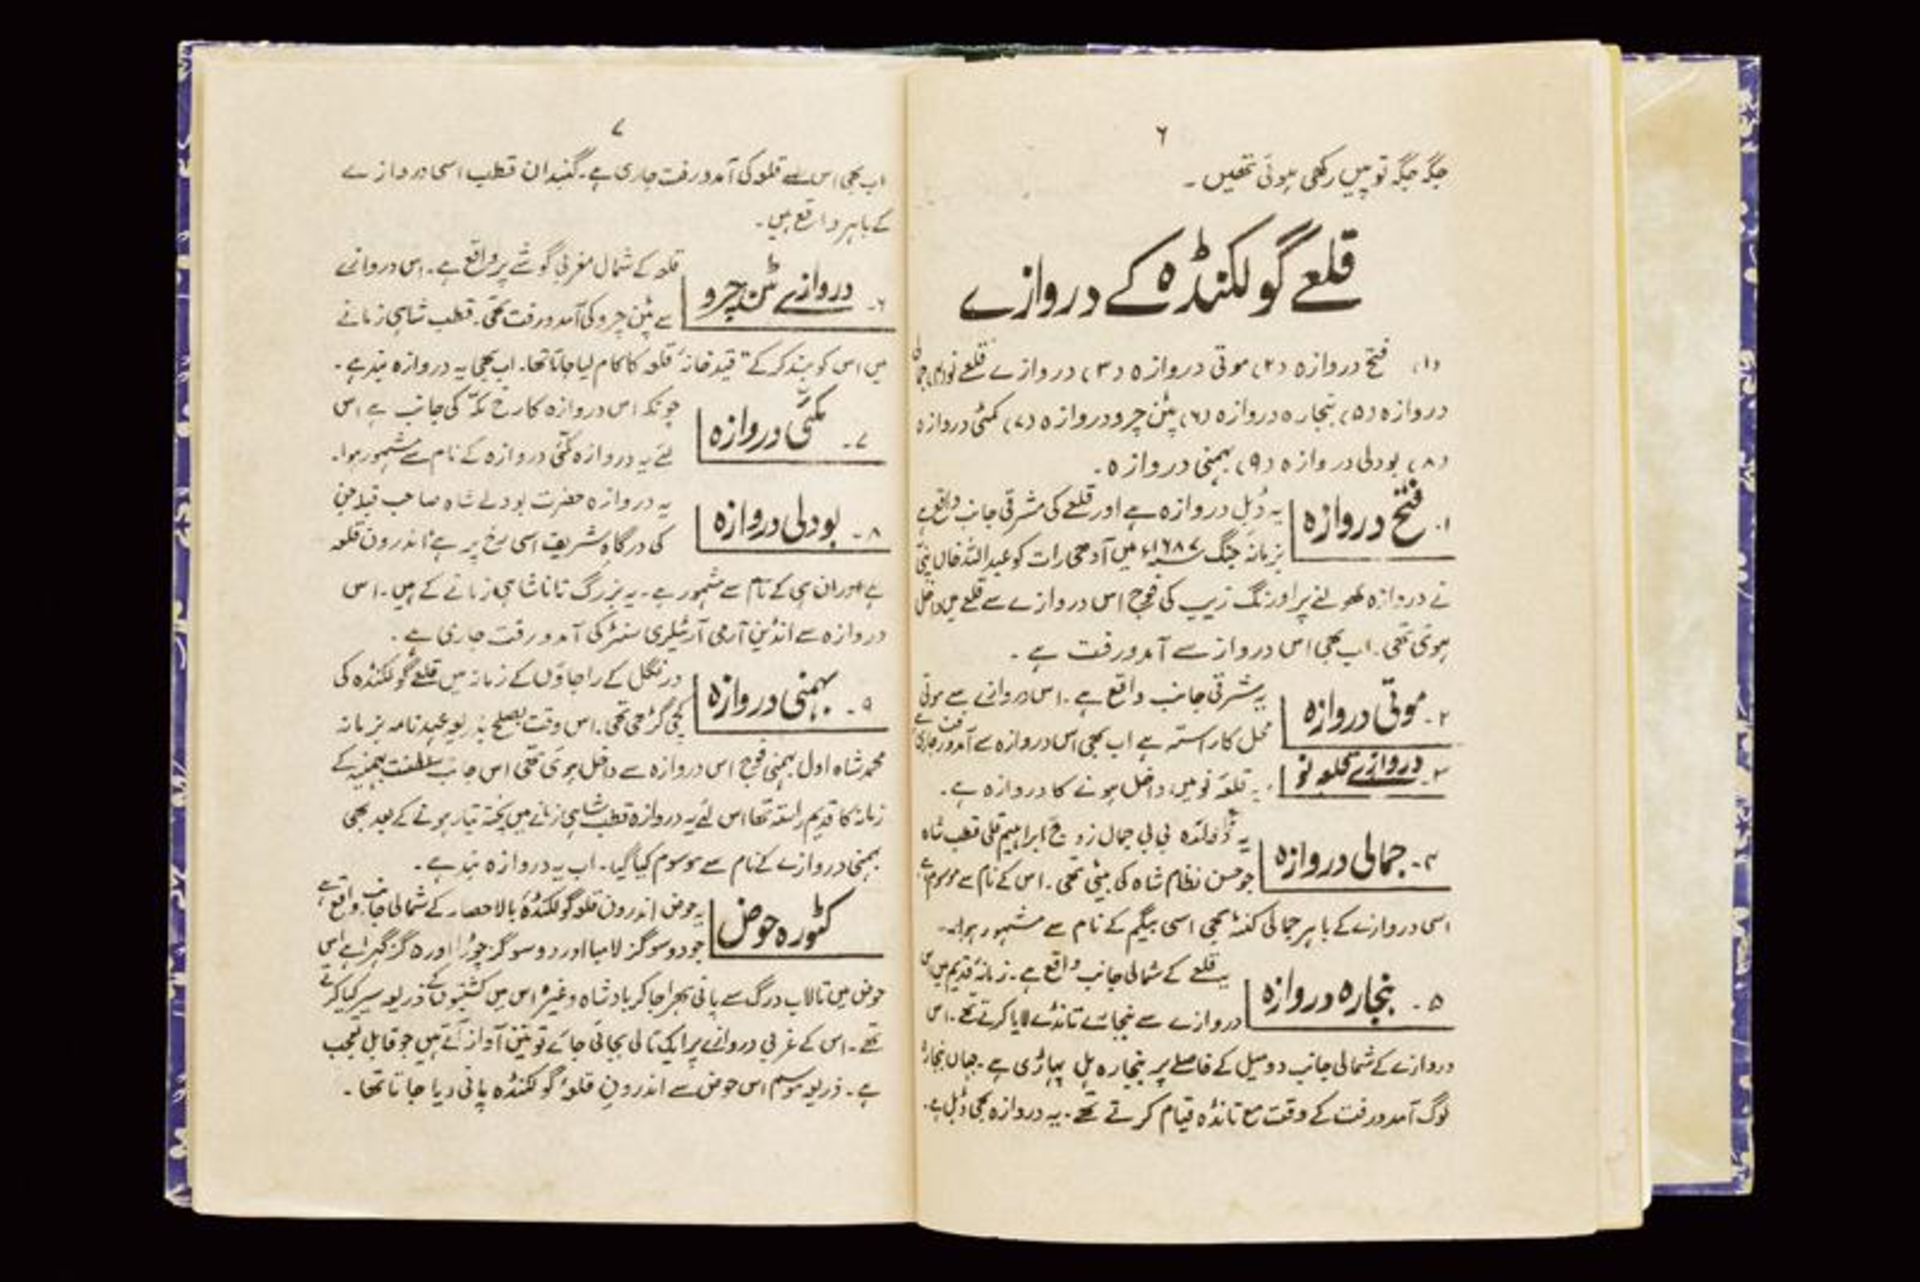 ۶
جگہ جگہ توپیں رکھی ہوئی تھیں ۔
قلعے گولکنڈہ کے دروازے
(۱) فتح دروازہ (۲) موتی دروازہ (۳) دروازے قلعے نو (۴) جمالی
دروازہ (۵) بنجارہ دروازہ (۶) پٹن چرو دروازہ (۷) مکئی دروازہ
(۸) بودلی دروازہ (۹) بہمنی دروازہ ۔
۱۔ فتح دروازہ
یہ ڈبل دروازہ ہے اور قلعے کی مشرقی جانب واقع ہے
بزمانہ جنگ ۱۶۸۷ء میں آدھی رات کو عبداللہ خاں پنی
نے دروازہ کھولنے پر اورنگ زیب کی فوج اس دروازے سے قلعے میں داخل
ہوئی تھی ۔ اب بھی اس دروازے سے آمدورفت ہے ۔
۲۔ موتی دروازہ
یہ مشرقی جانب واقع ہے ۔ اس دروازے سے موتی
محل کا راستہ ہے اب بھی اس دروازہ سے آمدورفت جاری ہے
۳۔ دروازے قلعہ نو
یہ قلعہ نو میں داخل ہونے کا دروازہ ہے ۔
۴۔ جمالی دروازہ
یہ بی بی جمال زوجہ ابراہیم قلی قطب شاہ
جو حسن نظام شاہ کی بیٹی تھی ۔ اس کے نام سے موسوم ہے
اسی دروازے کے باہر جمالی کنٹہ بھی اسی بیگم کے نام سے مشہور ہوا ۔
۵۔ بنجارہ دروازہ
یہ قلعے کے شمالی جانب واقع ہے ۔ زمانہ قدیم میں اس
دروازے سے بنجارے تانڈے لایا کرتے تھے ۔ اس
دروازے کے شمالی جانب دو میل کے فاصلے پر بنجارہ ہل پہاڑی ہے ۔ جہاں بنجارہ
لوگ آمدورفت کے وقت مع تانڈہ قیام کرتے تھے ۔ یہ دروازہ بھی ڈبل ہے ۔
۷
اب بھی اس سے قلعہ کی آمدورفت جاری ہے ۔ گنبدان قطب اسی دروازے
کے باہر واقع ہیں ۔
۶۔ دروازے پٹن چرو
قلعہ کے شمال مغربی گوشے پر واقع ہے ۔ اس دروازے
سے پٹن چرو کی آمدورفت تھی ۔ قطب شاہی زمانے
میں اس کو بند کر کے قید خانہ قلعہ کا کام لیا جاتا تھا ۔ اب بھی یہ دروازہ بند ہے ۔
۷۔ مکئی دروازہ
چونکہ اس دروازہ کا رخ مکہ کی جانب ہے اس
لئے یہ دروازہ مکئی دروازہ کے نام سے مشہور ہوا ۔
۸۔ بودلی دروازہ
یہ دروازہ حضرت بودلے شاہ صاحب قبلہ جن
کی درگاہ شریف اسی رخ پر ہے اندرون قلعہ
ہے اور ان ہی کے نام سے مشہور ہے ۔ یہ بزرگ تانا شاہی زمانے کے ہیں ۔ اس
دروازہ سے انڈین آرمی آرٹیلری سنٹر کی آمدورفت جاری ہے ۔
۹۔ بہمنی دروازہ
ورنگل کے راجاؤں کے زمانہ میں قلعے گولکنڈہ کی
کچی گڑھی تھی ۔ اس وقت بصلح بذریعہ عہد نامہ بزمانہ
محمد شاہ اول بہمنی فوج اس دروازہ سے داخل ہوئی تھی اس جانب سلطنت بہمنیہ کے
زمانہ کا قدیم راستہ تھا اس لئے یہ دروازہ قطب شاہی زمانے میں پختہ تیار ہونے کے بعد بھی
بہمنی دروازے کے نام سے موسوم کیا گیا ۔ اب یہ دروازہ بند ہے ۔
کٹورہ حوض
یہ حوض اندرون قلعہ گولکنڈہ بالا حصار کے شمالی جانب واقع ہے
جو دو سو گز لامبا اور دو سو گز چوڑا اور ۵ گز گہرا ہے اس
حوض میں تالاب درگ سے پانی بھرا جا کر بادشاہ وغیرہ اس میں کشتیوں کے ذریعہ سیر کیا کرتے
تھے ۔ اس کے غربی دروازے پر ایک تالی بجائی جائے تو تین آواز آتے ہیں جو قابل تعجب
ہے ۔ ذریعہ اس حوض سے اندرون قلعہ گولکنڈہ پانی دیا جاتا تھا ۔